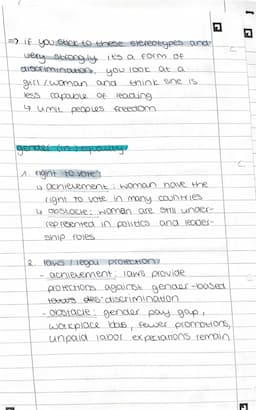 => if you stick to these stereotypes and
very strongly it's a form of
discrimination, you look at a
girl / woman and think she is
less capable of leading
↳ limit peoples freedom
gender (in) equality
1. right to vote:
↳ achievement: woman have the
right to vote in many countries
↳ obstacle: woman are still under-
represented in politics and leader-
ship roles
2. laws / legal protection:
- achievement: laws provide
protections against gender-based
discrimination
- obstacle: gender pay gap,
workplace bias, fewer promotions,
unpaid labor expectations remain